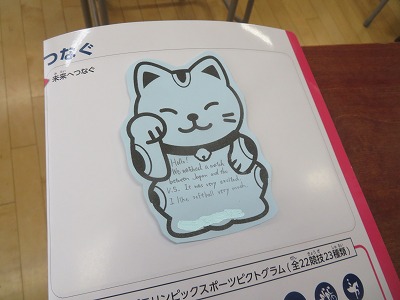 つなぐ
未来へつなぐ
Hello!
We watched a match
between Japan and the
U.S. It was very excited.
I like softball very much.
リンピックスポーツピクトグラム(全22競技23種類)